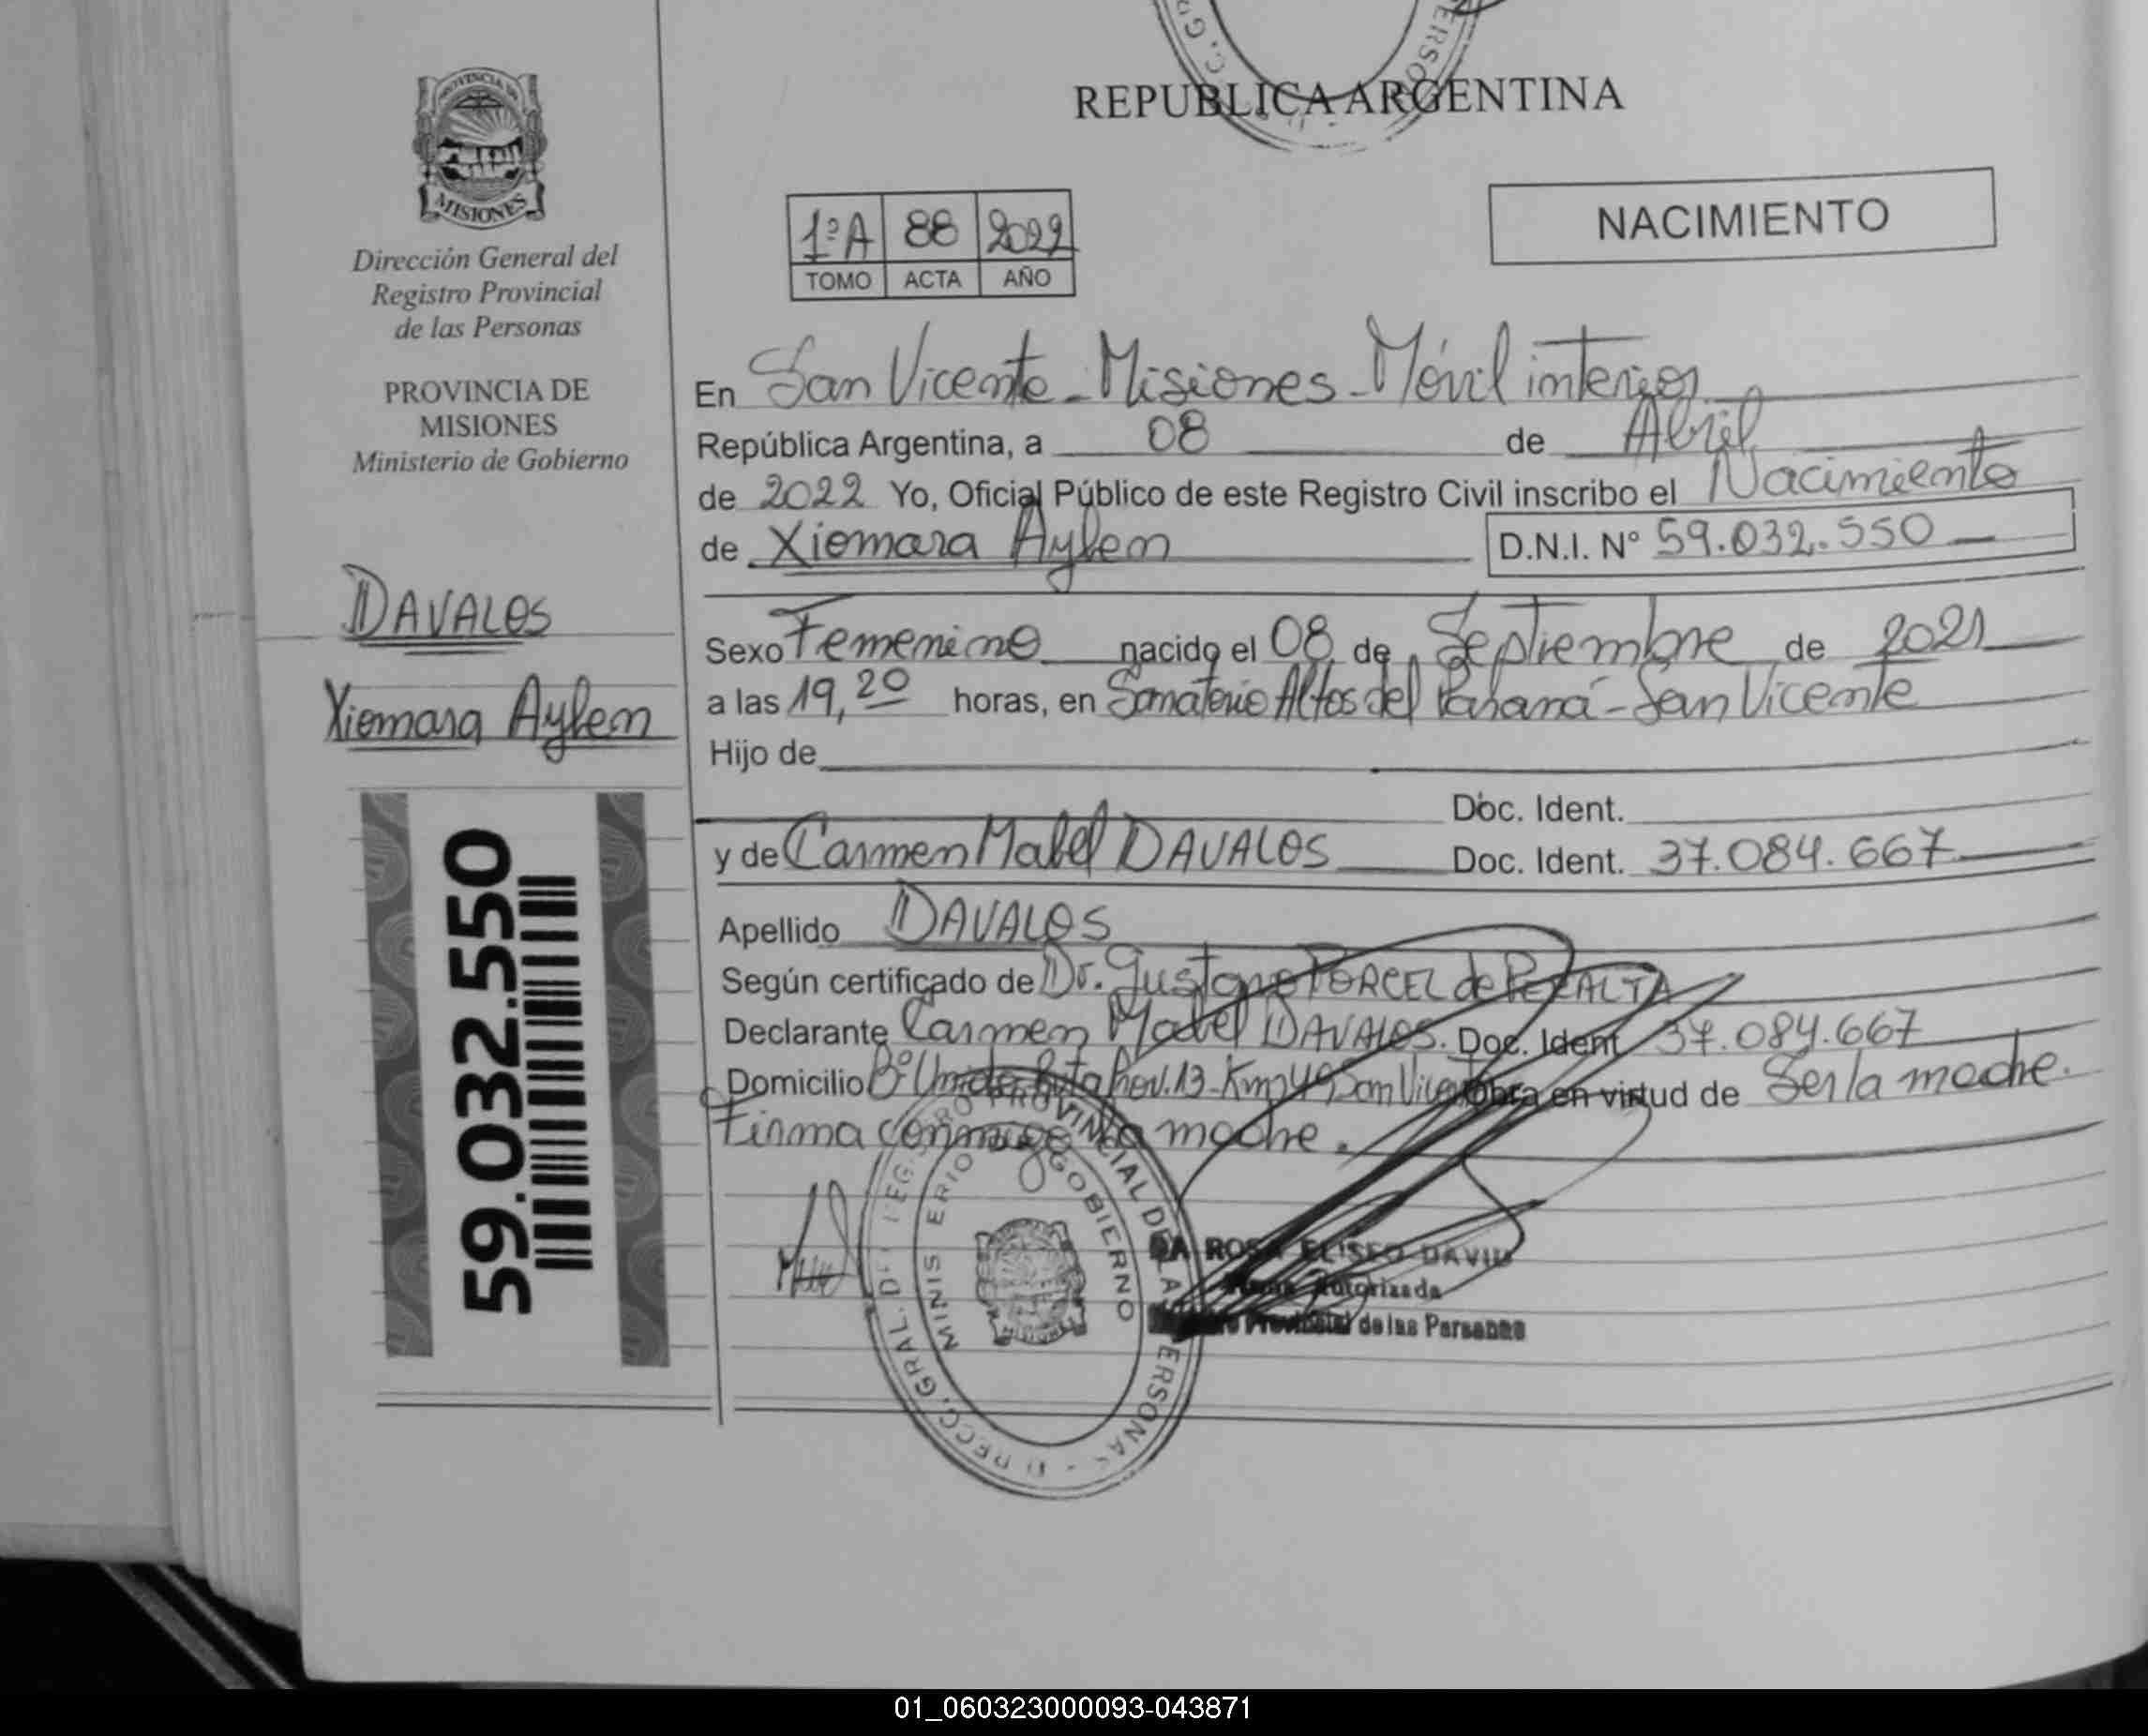 REPUBLICA ARGENTINA
PROVINCIA DE
MISIONES
Dirección General del
Registro Provincial
de las Personas
PROVINCIA DE
MISIONES
Ministerio de Gobierno
DAVALOS
Xiomara Aylen
59.032.550
NACIMIENTO
1ºA 88 2022
TOMO ACTA AÑO
En San Vicente - Misiones - Móvil interior
República Argentina, a 08 de Abril
de 2022 Yo, Oficial Público de este Registro Civil inscribo el Nacimiento
de Xiomara Aylen D.N.I. N° 59.032.550
Sexo Femenino nacido el 08 de Septiembre de 2021
a las 19,20 horas, en Sanatorio Altos del Paraná - San Vicente
Hijo de
Doc. Ident.
y de Carmen Mabel DAVALOS Doc. Ident. 37.084.667
Apellido DAVALOS
Según certificado de Dr. Gustavo PORCEL de PERALTA
Declarante Carmen Mabel DAVALOS. Doc. Ident 37.084.667
Domicilio Bº Unido Ruta Prov. 13 - Km 49 San Vicente obra en virtud de Ser la madre.
Firma conmigo la madre.
DA ROSA ELISEO DAVID
Firma Autorizada
Provincial de las Personas
MINISTERIO GOBIERNO
01_060323000093-043871